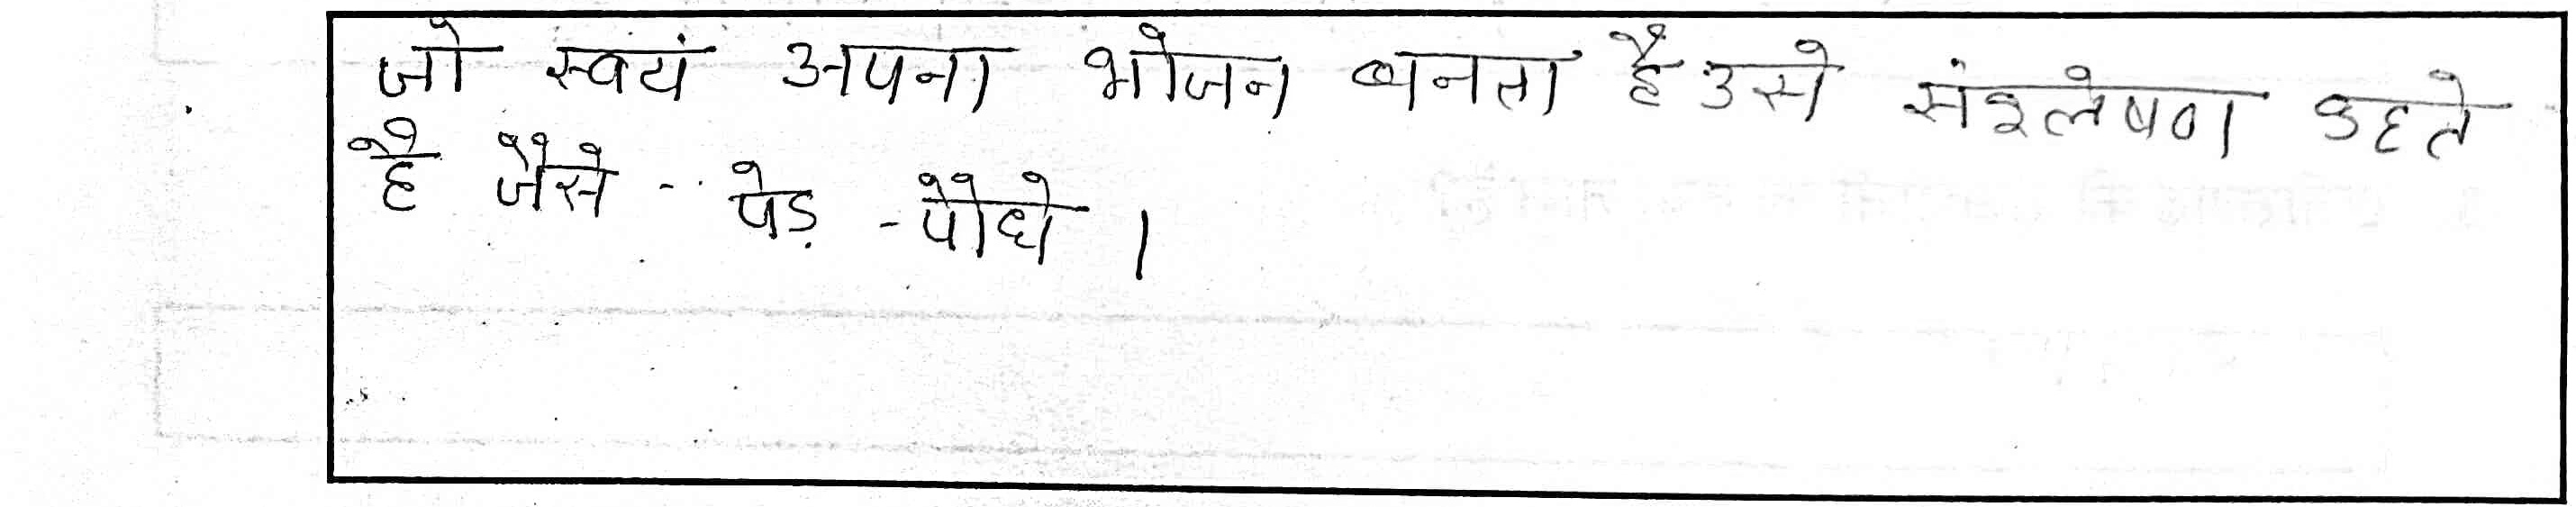 जो स्वयं अपना भोजन बनता है उसे संश्लेषण कहते
है जैसे - पेड़ - पौधे ।